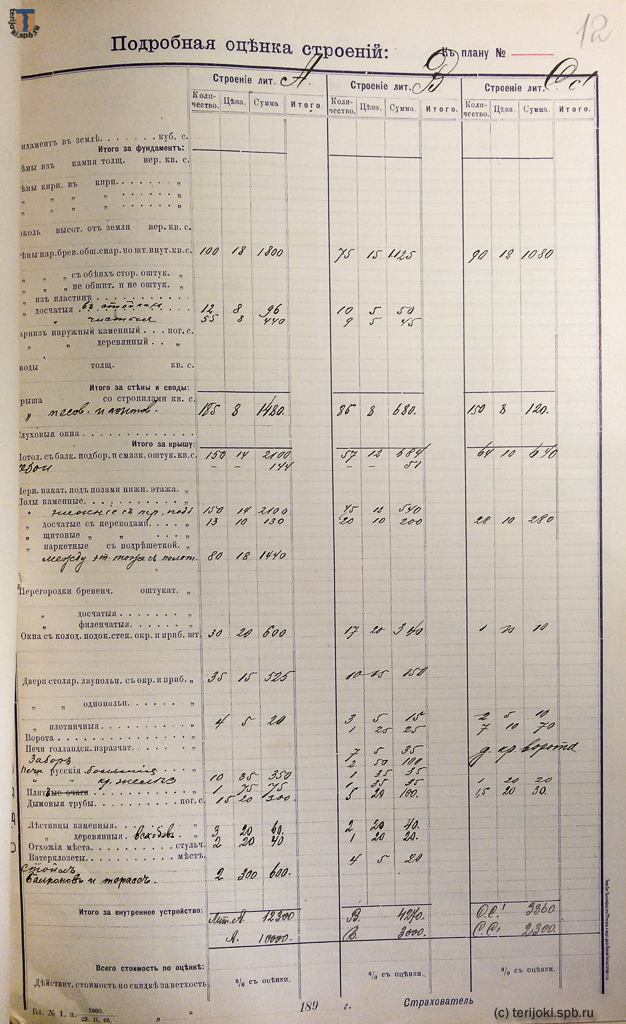 terijoki.spb.ru
12
Подробная оцѣнка строеній: Къ плану №
Строеніе лит. А. Строеніе лит. В Строеніе лит. С с1
Количество. Цѣна. Сумма Итого. Количество. Цѣна. Сумма. Итого. Количество. Цѣна. Сумма. Итого.
ндаментъ въ землѣ. . . . . . . куб. с.
Итого за фундаментъ:
ѣны изъ камня толщ. вер. кв. с.
ѣны кирп. въ кирп. . . . . . . „
„ „ „ „ . . . . . . „
„ „ „ „ . . . . . . „
околь высот. отъ земли вер. кв. с.
ѣны нар. брев. обш. снар. по шт. внут. кв. с. 100 18 1800 75 15 1125 90 12 1080
„ „ „ съ обѣихъ стор. оштук. „
„ „ „ не обшит. и не оштук. „
„ изъ пластинъ . . . . . . . „
„ досчатыя 12 8 96 10 5 50
„ чистыя 55 8 440 9 5 45
арнизъ наружный каменный . . . пог. с.
„ „ деревянный . . „
воды толщ. кв. с.
Итого за стѣны и своды:
рыша со стропилами кв. с.
185 8 1480. 85 8 680. 150 8 120.
луховыя окна . . . . . . . . . .
Итого за крышу:
Потол. съ балк. подбор. и смазк. оштук. кв. с. 150 14 2100 57 12 684 64 10 640
– – 144 – – 51
Черн. накат. подъ полами нижн. этажа. „
Полы каменные. . . . . . . . . . „
150 14 2100 45 12 540
„ досчатые съ переводами. . . . „ 13 10 130 20 10 200 28 10 280
„ щитовые „ „ . . . . „
„ паркетные съ подрѣшеткой. „
между эт. 80 18 1440
Перегородки бревенч. оштукат. „
„ досчатыя . . . . . . „
„ филенчатыя . . . . . „
Окна съ колод. подок. стек. окр. и приб. шт. 30 20 600 17 20 340 1 10 10
Двери столяр. двупольн. съ окр. и приб. „ 35 15 525 10 15 150
„ „ однопольн. . . „
„ плотничныя . . . . . . . „ 4 5 20 3 5 15 2 5 10
Ворота . . . . . . . . . . . . „ 1 25 25 7 10 70
Печи голландск. изразчат. . . . . . „ 7 5 35 ворота
Заборъ 2 50 100
Печи русскія большія „ 10 35 350 1 35 35
„ „ „ 1 75 75 1 35 35 1 20 20
Дымовыя трубы. . . . . . . пог. с. 15 20 300 5 20 100. 15 20 30.
Лѣстницы каменныя. . . . . . . „
„ деревянныя. . . . „ 3 20 60. 2 20 40.
Отхожія мѣста. . . . . . . стульч. 2 20 40 1 20 20.
Ватерклозеты. . . . . . . . мѣстъ. 4 5 20
балконовъ и терассъ. 2 300 600.
Итого за внутреннее устройство: Лит. А. 12300 В. 4240. С.С1 3360
А. 10000. В. 3000. С.С1 2300.
Всего стоимость по оцѣнкѣ:
Дѣйствит. стоимость по скидкѣ за ветхость % съ оцѣнки. % съ оцѣнки. % съ оцѣнки.
189 г. Страхователь
Бл. № 1. а.
(c) terijoki.spb.ru